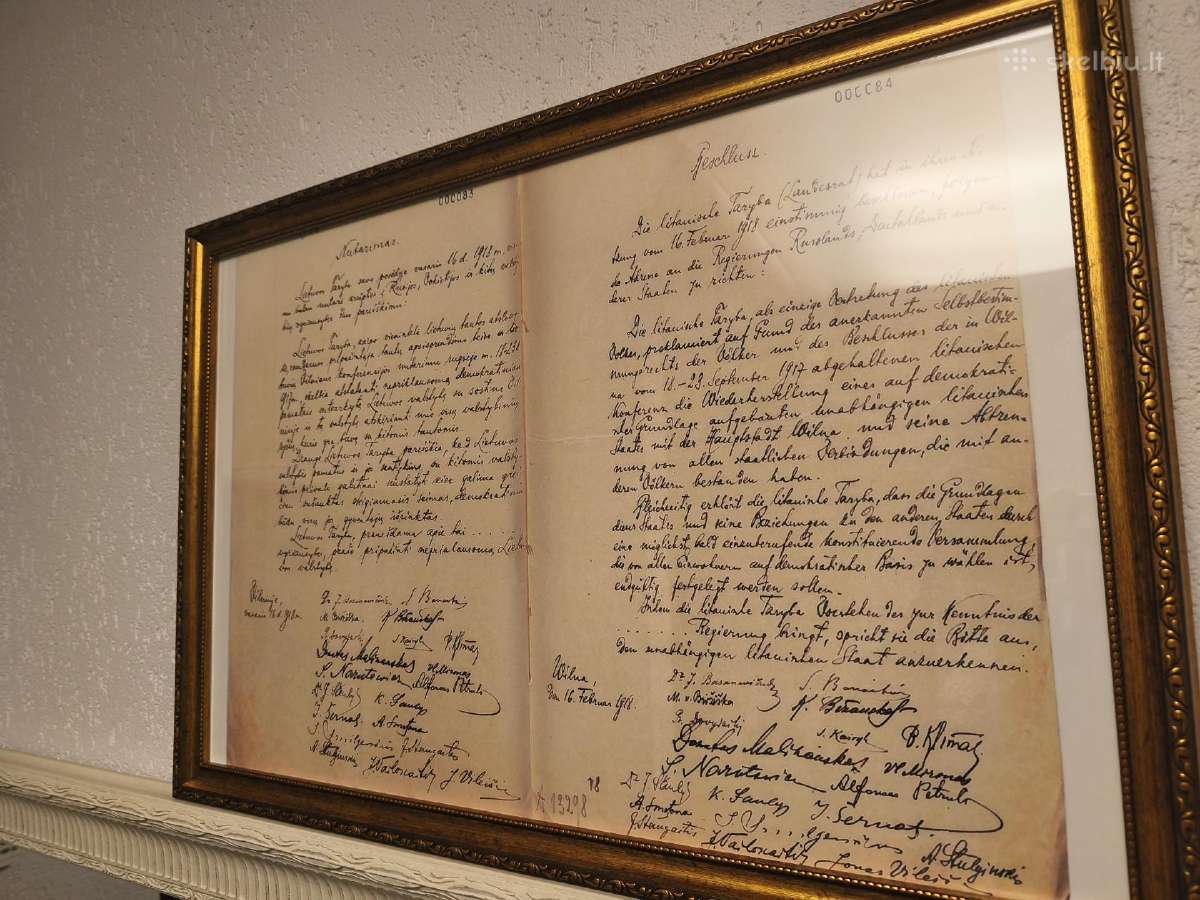 skelbiu.lt
000083
Nutarimas.
Lietuvos Taryba savo posėdyje vasario 16 d. 1918 m. vien
balsiu nutarė kreiptis į Rusijos, Vokietijos ir kitų valsty-
bių vyriausybes šiuo pareiškimu:
Lietuvos Taryba, kaipo vienintelė lietuvių tautos atstovy-
bė, remdamos pripažintąja tautų apsisprendimo teise ir lie-
tuvių Vilniaus konferencijos nutarimu rugsėjo m. 18-23 d.
1917 m., skelbia atstatanti nepriklausomą, demokratiniais
pamatais sutvarkytą Lietuvos valstybę su sostine Vil-
niuje ir tą valstybę atskirianti nuo visų valstybinių
ryšių, kurie yra buvę su kitomis tautomis.
Drauge Lietuvos Taryba pareiškia, kad Lietuvos
valstybės pamatus ir jos santykius su kitomis valsty-
bėmis privalo galutinai nustatyti kiek galima grei-
čiau sušauktas steigiamasis seimas, demokratiniu
būdu visų jos gyventojų išrinktas.
Lietuvos Taryba, pranešdama apie tai . . . . .
vyriausybei, prašo pripažinti nepriklausomą Lietu-
vos valstybę.
Vilniuje,
vasario 16 d. 1918 m.
Dr. J. Basanavičius S. Banaitis
M. Biržiška K. Bizauskas
Pr. Dovydaitis S. Kairys P. Klimas
Donatas Malinauskas Vl. Mironas
S. Narutowicz Alfonsas Petrulis
Dr. J. Šaulys K. Šaulys
J. Šernas A. Smetona
J. Staugaitis
A. Stulginskis J. Vailokaitis J. Vileišis
000084
Beschluss.
Die litauische Taryba (Landesrat) hat in ihrer Sit-
zung vom 16. Februar 1918 einstimmig beschlossen, folgen-
de Adresse an die Regierungen Russlands, Deutschlands und an-
derer Staaten zu richten:
Die litauische Taryba, als einzige Vertretung des litauischen
Volkes, proklamiert auf Grund des anerkannten Selbstbestim-
mungsrechts der Völker und des Beschlusses der in Wil-
na vom 18.-23. September 1917 abgehaltenen litauischen
Konferenz die Wiederherstellung eines auf demokrati-
scher Grundlage aufgebauten unabhängigen litauischen
Staates mit der Hauptstadt Wilna und seine Abtren-
nung von allen staatlichen Verbindungen, die mit an-
deren Völkern bestanden haben.
Gleichzeitig erklärt die litauische Taryba, dass die Grundlagen
dieses Staates und seine Beziehungen zu den anderen Staaten durch
eine möglichst bald einzuberufende konstituierende Versammlung,
die von allen Einwohnern auf demokratischer Basis zu wählen ist,
endgültig festgelegt werden sollen.
Indem die litauische Taryba Vorstehendes zur Kenntnis der
. . . . . . . Regierung bringt, spricht sie die Bitte aus,
den unabhängigen litauischen Staat anzuerkennen.
Wilna,
den 16. Februar 1918.
Dr. J. Basanavičius S. Banaitis
M. v. Biržiška K. Bizauskas
Pr. Dovydaitis S. Kairys P. Klimas
Donatas Malinauskas Vl. Mironas
S. Narutowicz Alfonsas Petrulis
Dr. J. Šaulys K. Šaulys J. Šernas
A. Smetona
J. Staugaitis A. Stulginskis
J. Vailokaitis Jonas Vileišis
A 13298 78